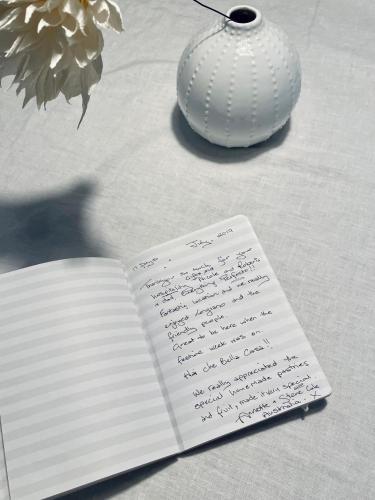 11 Days July, 2019
so much for your
hospitality, Nicole and Roberto
Everything Perfecto!!
Fantastic location and we really
enjoyed Longiano and the
friendly people.
Great to be here when the
festive week was on
Ha che Bella Casa!!
We really appreciated the
special homemade pastries
and fruit, made it very special
Annette + Steve
Australia. X